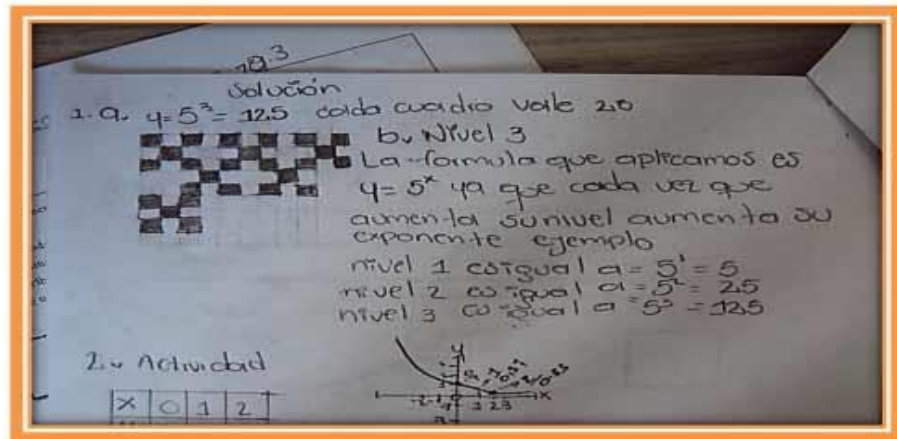 Solución
1. a. y = 5³ = 125 cada cuadro vale 20
b. Nivel 3
La formula que aplicamos es
y = 5ˣ ya que cada vez que
aumenta su nivel aumenta su
exponente ejemplo
nivel 1 es igual a = 5¹ = 5
nivel 2 es igual a = 5² = 25
nivel 3 es igual a = 5³ = 125
2. Actividad
y
x
x 0 1 2